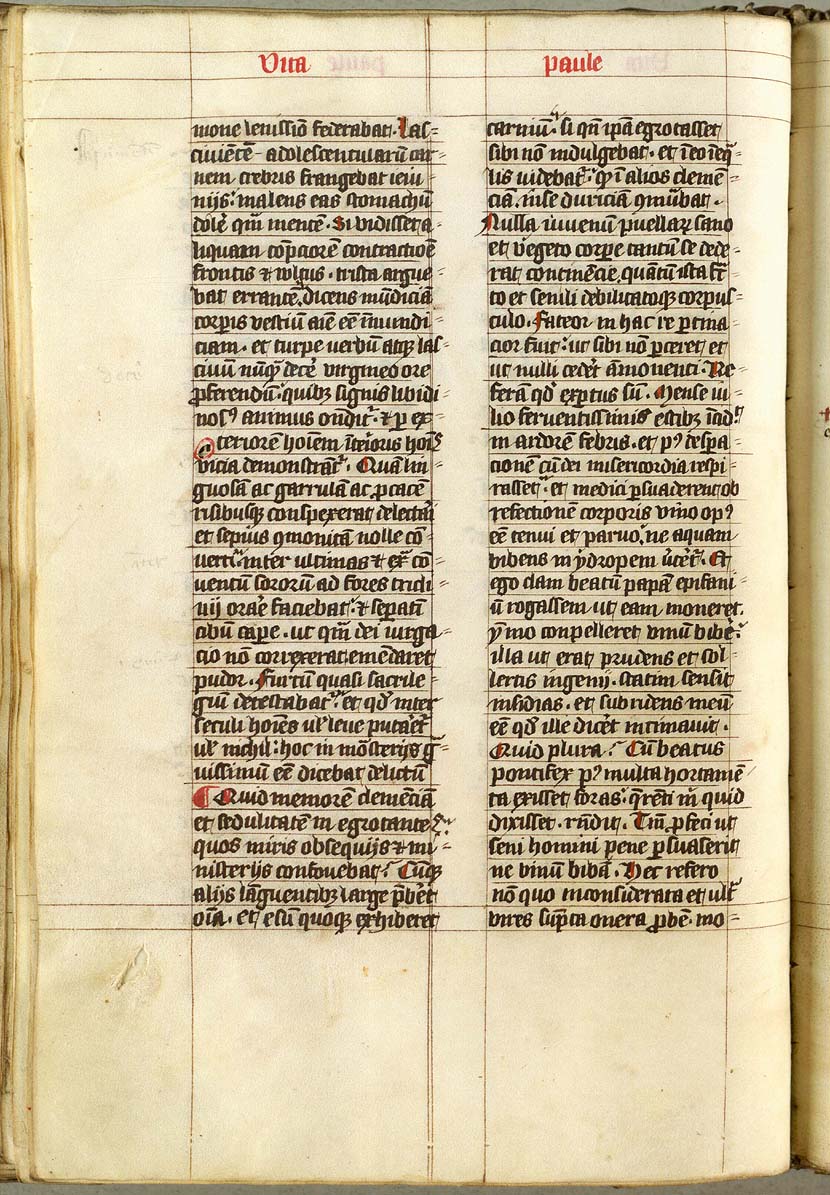 Vita paule
mone lenissiō federabat. Las=
ciuiētē adolescentularū car=
nem crebris frangebat ieiu=
niis: malens eas stomachū
dolē qm̄ mentē. Si vidisset a=
liquam cōpciorē contractiōe
frontis et wltus tristā argue=
bat errantē, dicens mūdiciā
corpis vestiū aīe eē īmundi=
ciam. et turpe verbū atqꝫ las=
ciuū nūqꝫ decē virgineo ore
ꝓferendū: quibꝫ signis libidi=
nosꝰ animus ondit̄. et p ex=
teriorem hoīem īterioris hoīs
vicia demonstrāt̄. Quā lin=
guosam ac garrulam ac ꝓcacē
risibusqꝫ conspexerat delectari
et sepius ꝯmonitā nolle cō=
uerti: inter ultimas et ex̄ cō=
uentū sororū ad fores tricli=
nij orāe faciebat: et sepatī
cibū cape. ut qm̄ dei iurga=
cio nō correxerat emēdaret
pudor. Furtū quasi sacrile=
giū detestabat̄. et qd̄ inter
seculi hoīes ul̄ leue putāet̄
ul̄ nichil: hoc in mōsterijs gͣ=
uissimū eē dicebat delictū
¶ Quid memorē clemēciā
et sedulitatē in egrotante
quos miris obsequijs et mi=
nisterijs confouebat? Cūqꝫ
alijs lāguentibꝫ large p̄bēt
oīa. et esū quoqꝫ exhiberet
carniū. si qn̄ ipā egrotasset
sibi nō indulgebat. et ī eo īeq̄=
lis videbat̄. qꝫ ī alios clemē=
ciā, in se duriciam ꝯmu̅bat.
Nulla iuuenū puellaꝝ sano
et vegeto corpe tantū se dede=
rat continēcie, quantū ista fc̄=
to et senili debilitatoqꝫ corpus=
culo. Fateor in hac re ptina=
cior fuit: ut sibi nō pceret et
ut nulli cedēt āmonenti. Re=
ferā qd̄ exptus sū. Mense iu=
lio feruentissimis estibꝫ īcidit
in ardorē febris. et pꝰ despa=
cionē cū dei misericordia respi=
rasset: et medici psuaderent ob
refectionē corporis vino opꝰ
eē tenui et paruo, ne aquam
bibens in ydropem ūtēt̄. Et
ego clam beatū papā epifani=
ū rogassem ut eam moneret.
ymo conpelleret vinū bibē:
illa ut erat prudens et sol=
lertis ingenij. statim sensit
insidias. et subridens meū
eē qd̄ ille dicēt intimauit.
Quid plura? Cū beatus
pontifex pꝰ multa hortamē
ta exisset foras: q̄rēti m̄ quid
dixisset. rn̄dit. Tm̄ ꝓfeci ut
seni homini pene psuaserit
ne vinū bibā. Hec refero
nō quo inconsiderata et ult̄
vires sūpta onera ꝓbē. mo=